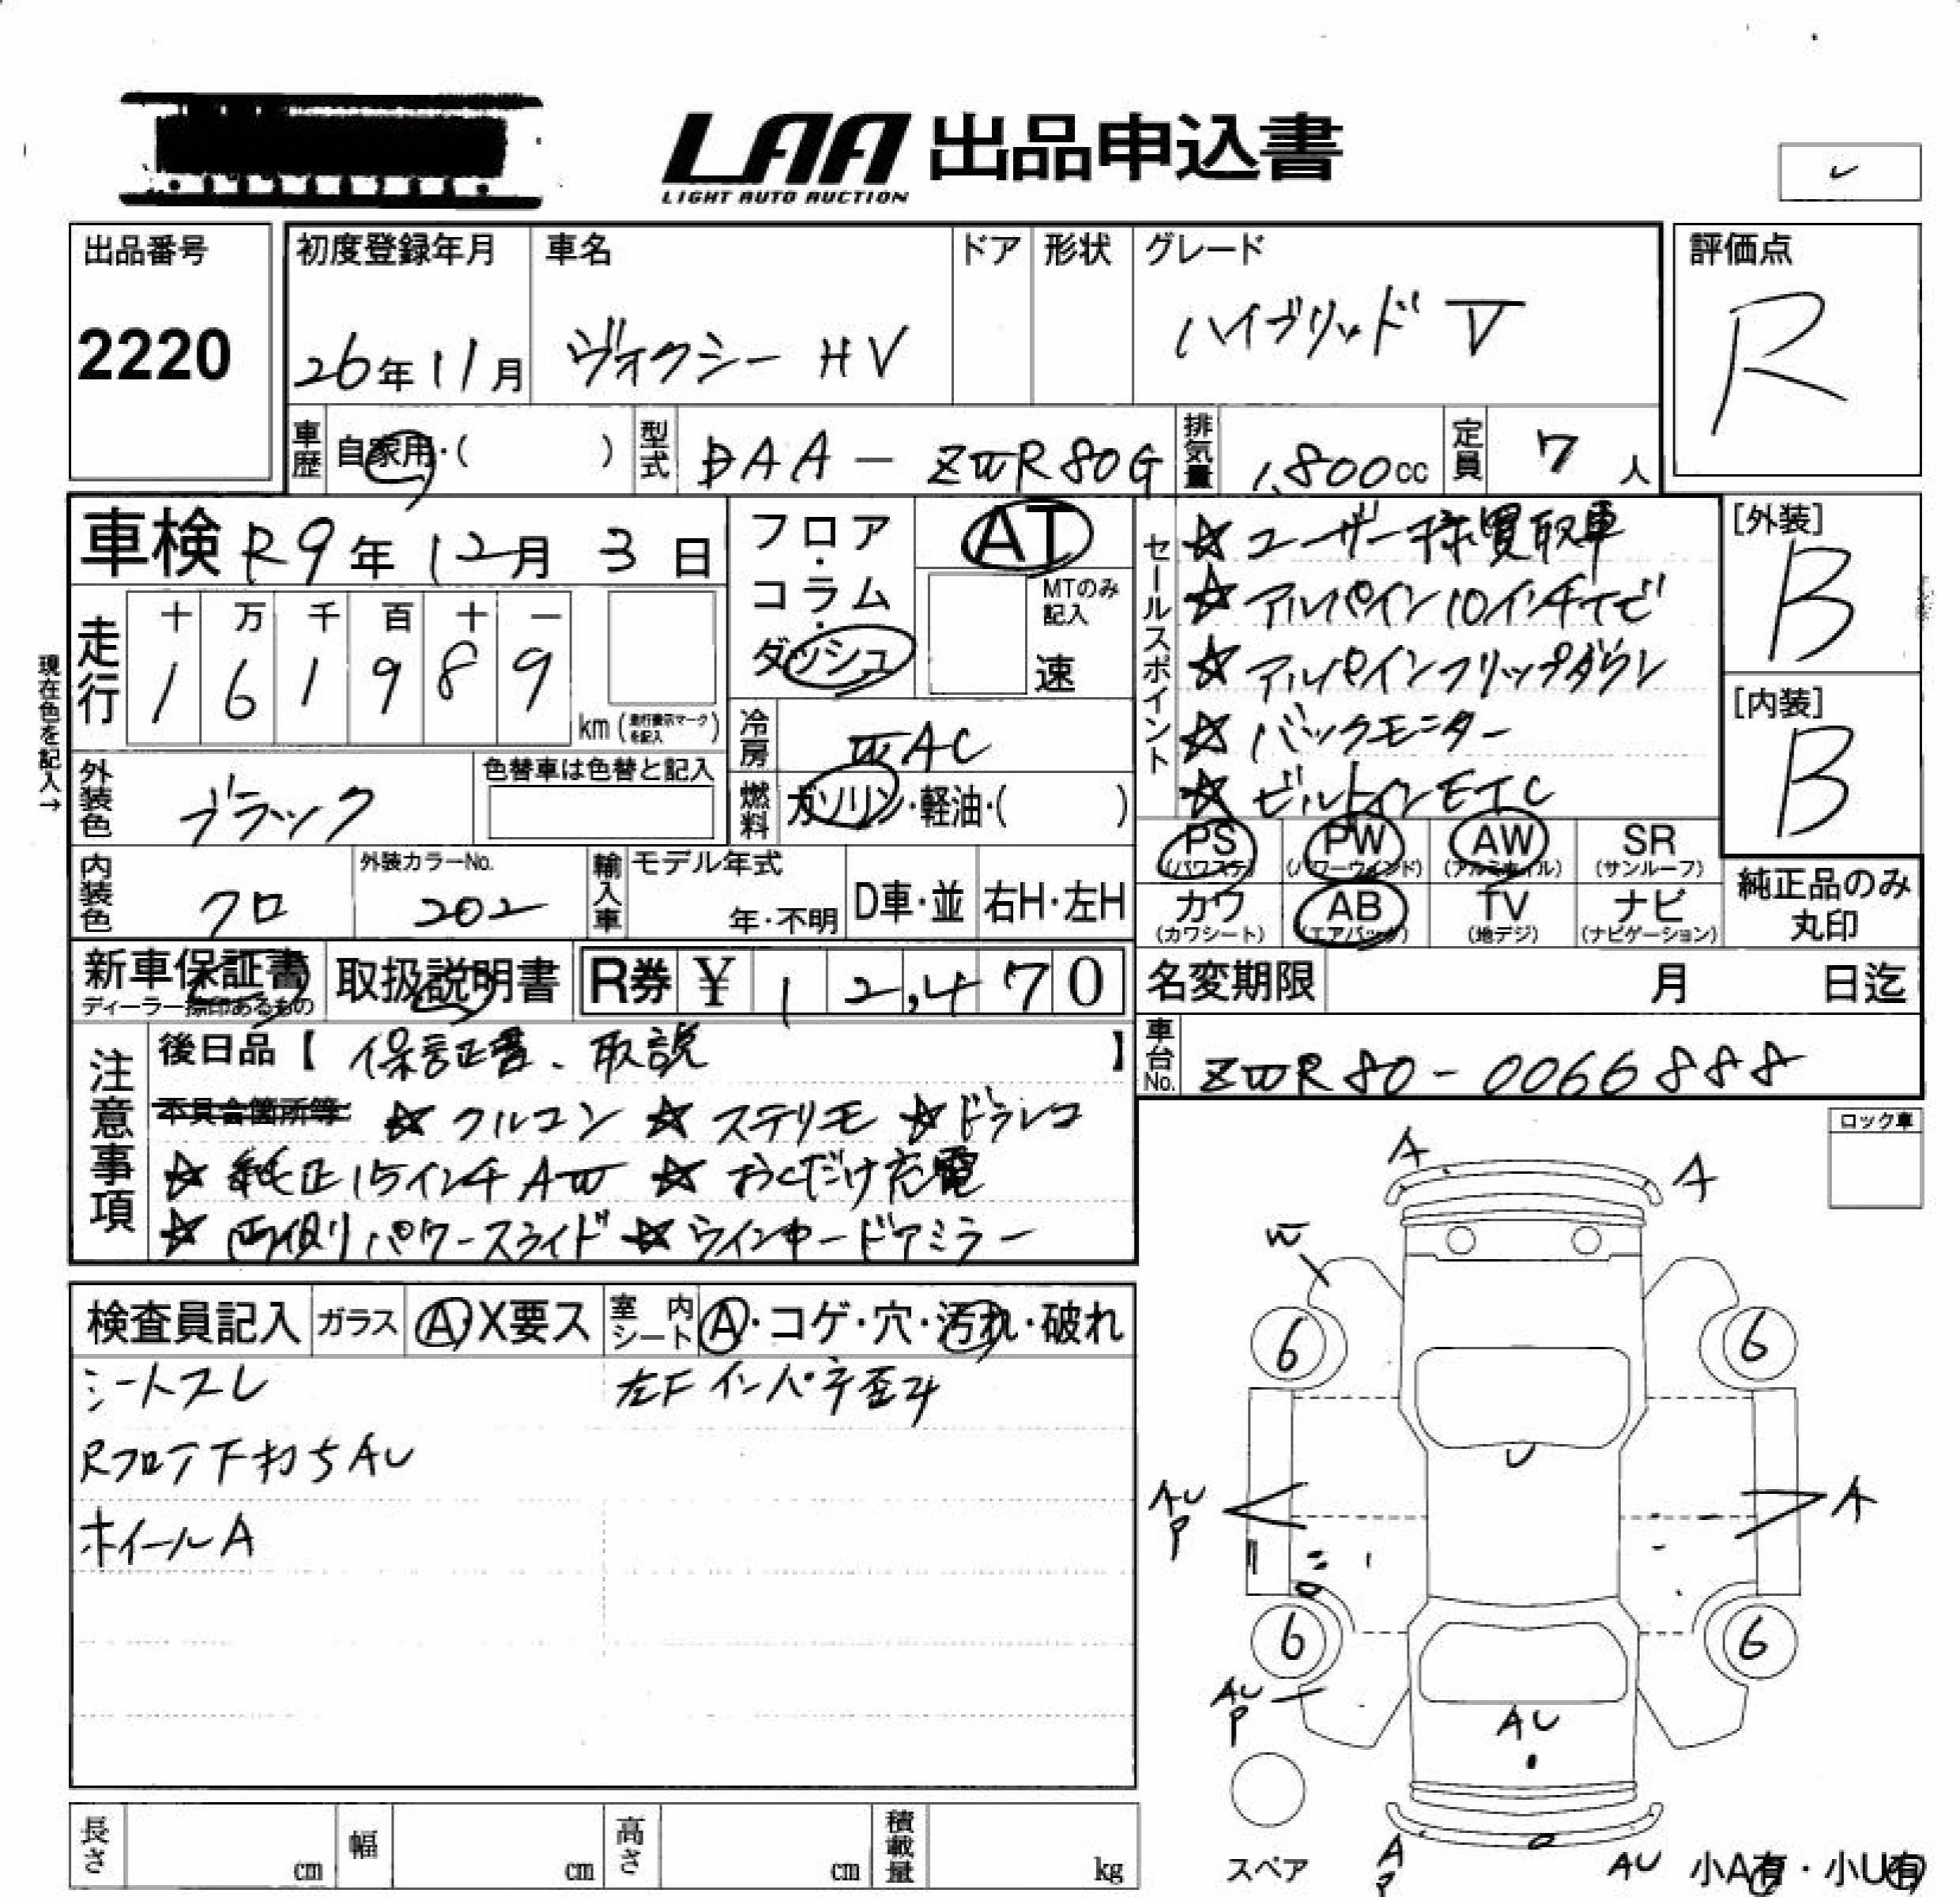 LAA 出品申込書
LIGHT AUTO AUCTION
出品番号
2220
初度登録年月
26年11月
車名
ヴォクシー HV
ドア
形状
グレード
ハイブリッド V
評価点
R
車歴
自家用・( )
型式
DAA - ZWR80G
排気量
1,800cc
定員
7人
車検 R9年12月3日
フロア・コラム・ダッシュ
AT
MTのみ記入
速
セールスポイント
☆ユーザー様買取車
☆アルパイン10インチナビ
☆アルパインフリップダウン
☆バックモニター
☆ビルトインETC
[外装]
B
[内装]
B
走行
十 万 千 百 十 一
1 6 1 9 8 9
km (走行表示マークを記入)
冷房
WAC
燃料
ガソリン・軽油・( )
現在色を記入→
外装色
ブラック
色替車は色替と記入
内装色
クロ
外装カラーNo.
202
輸入車
モデル年式
年・不明
D車・並
右H・左H
PS (パワステ)
PW (パワーウインド)
AW (アルミホイル)
SR (サンルーフ)
カワ (カワシート)
AB (エアバック)
TV (地デジ)
ナビ (ナビゲーション)
純正品のみ丸印
新車保証書
ディーラー捺印あるもの
取扱説明書
R券 ¥ 12,470
名変期限 月 日迄
車台No.
ZWR80-0066888
注意事項
後日品【 保証書、取説 】
不具合箇所等 ☆クルコン ☆ステリモ ☆ドラレコ
☆純正15インチAW ☆おくだけ充電
☆両側パワースライド ☆ウインカードアミラー
ロック車
検査員記入
ガラス
A・X要ス
室内シート
A・コゲ・穴・汚れ・破れ
シートスレ
左Fインパネ歪み
Rフロア下打ちAU
ホイールA
A
A
W
6
6
U
AU
P
A
6
6
AU
P
AU
A
P
AU
スペア
小A有・小U有
長さ cm
幅 cm
高さ cm
積載量 kg